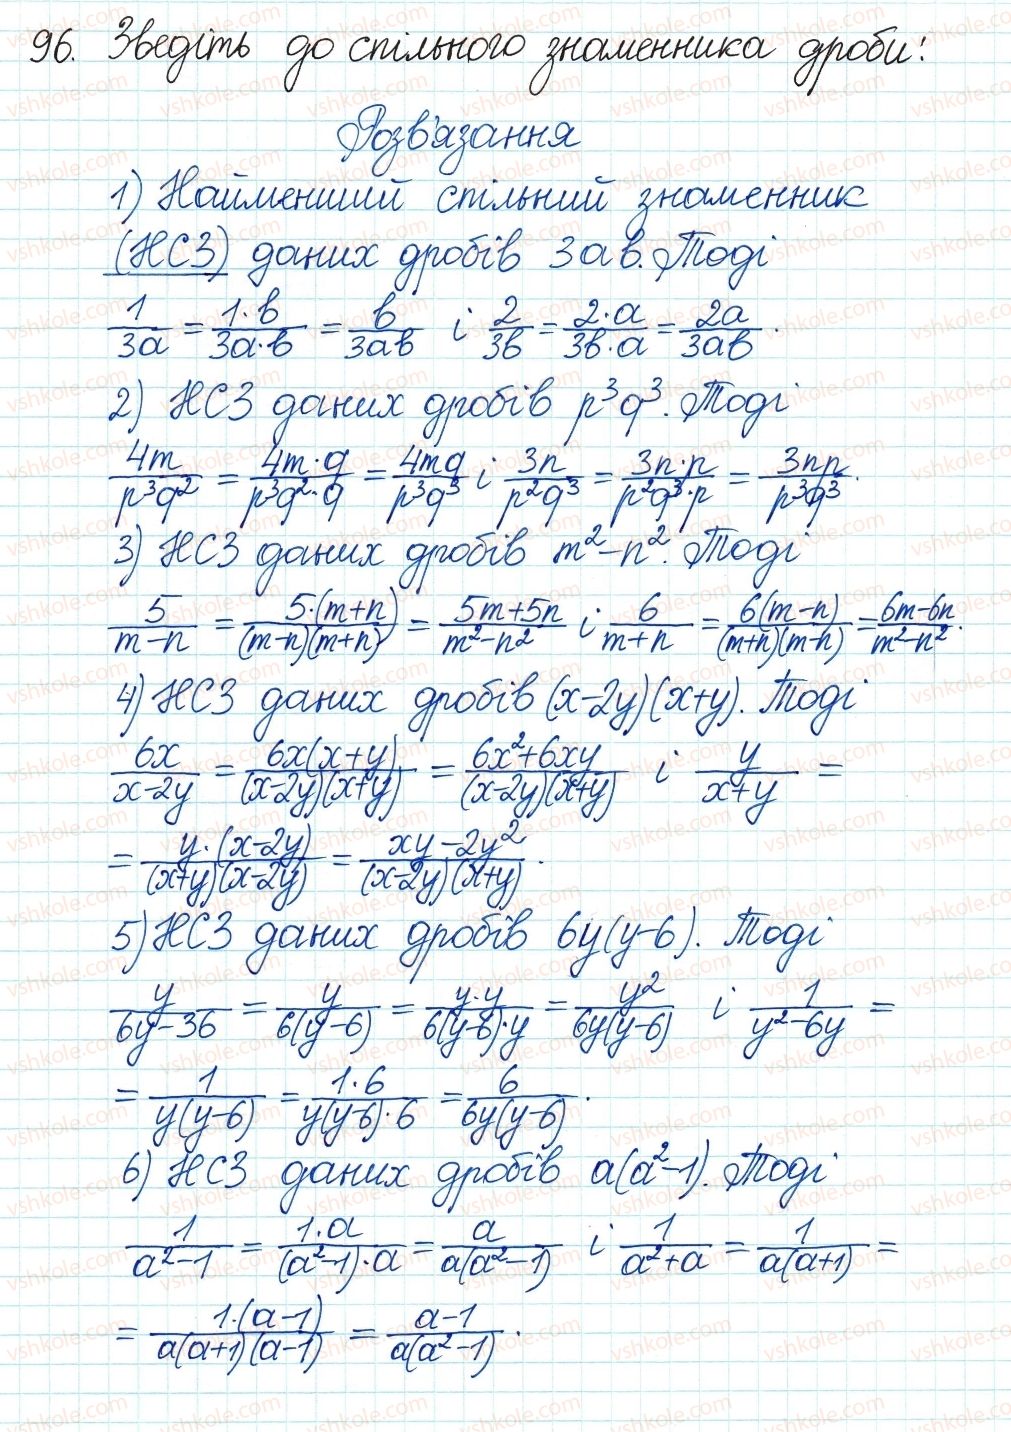 96. Зведіть до спільного знаменника дроби:
Розв'язання
1) Найменший спільний знаменник
(НСЗ) даних дробів 3ав. Тоді
1/3а = 1·в/3а·в = в/3ав і 2/3в = 2·а/3в·а = 2а/3ав.
2) НСЗ даних дробів p³q³. Тоді
4m/p³q² = 4m·q/p³q²·q = 4mq/p³q³ і 3n/p²q³ = 3n·p/p²q³·p = 3np/p³q³.
3) НСЗ даних дробів m²-n². Тоді
5/m-n = 5·(m+n)/(m-n)(m+n) = 5m+5n/m²-n² і 6/m+n = 6(m-n)/(m+n)(m-n) = 6m-6n/m²-n².
4) НСЗ даних дробів (x-2y)(x+y). Тоді
6x/x-2y = 6x(x+y)/(x-2y)(x+y) = 6x²+6xy/(x-2y)(x+y) і y/x+y =
= y·(x-2y)/(x+y)(x-2y) = xy-2y²/(x-2y)(x+y).
5) НСЗ даних дробів 6y(y-6). Тоді
y/6y-36 = y/6(y-6) = y·y/6(y-6)·y = y²/6y(y-6) і 1/y²-6y =
= 1/y(y-6) = 1·6/y(y-6)·6 = 6/6y(y-6).
6) НСЗ даних дробів a(a²-1). Тоді
1/a²-1 = 1·a/(a²-1)·a = a/a(a²-1) і 1/a²+a = 1/a(a+1) =
= 1·(a-1)/a(a+1)(a-1) = a-1/a(a²-1).
vshkole.com